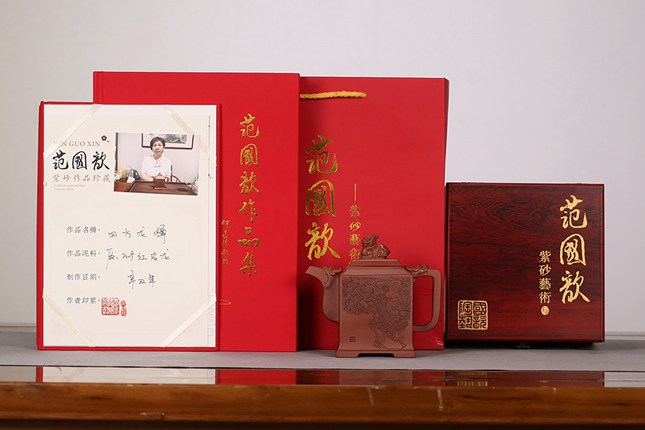 FAN GUO XIN
范國歆
紫砂作品珍藏
作品名稱:
四方龙
作品泥料:
制作日期:
辛丑年
作者印鉴:
范國歆作品集
范國歆
紫砂藝術
范國歆
紫砂藝術